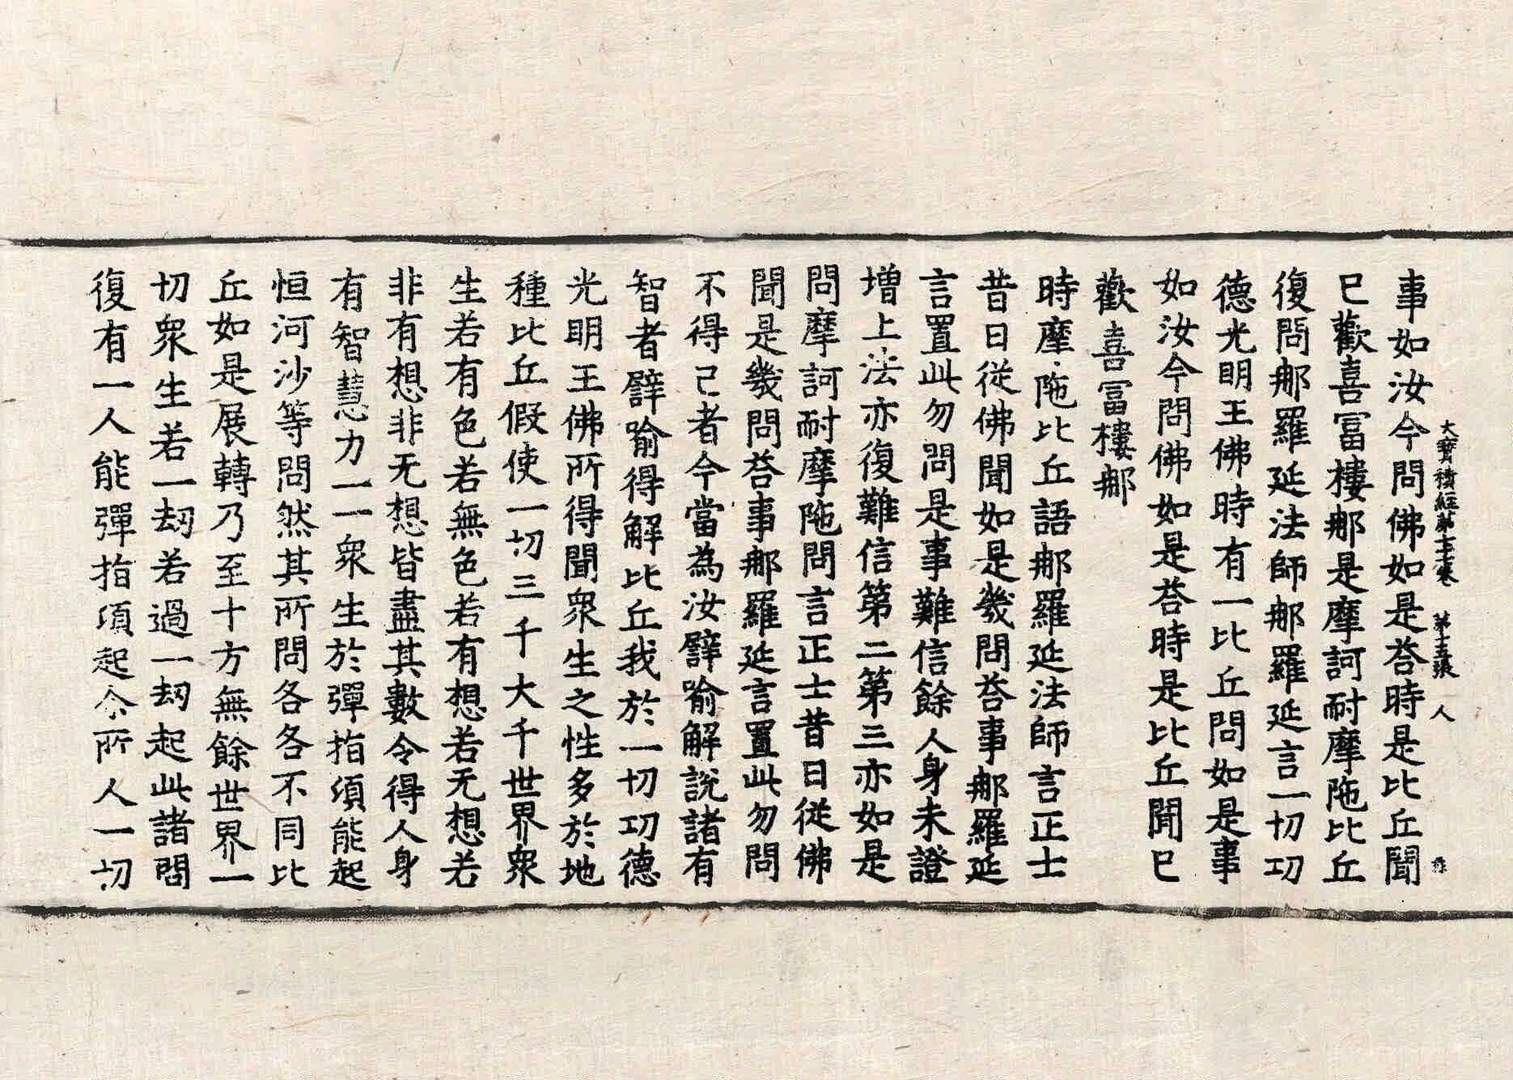 大寶積經第七十七卷 第十五張 人
事如汝今問佛如是荅時是比丘聞
已歡喜冨樓那是摩訶耐摩陁比丘
復問那羅延法師那羅延言一切功
德光明王佛時有一比丘問如是事
如汝今問佛如是荅時是比丘聞已
歡喜冨樓那
時摩陁比丘語那羅延法師言正士
昔日從佛聞如是幾問荅事那羅延
言置此勿問是事難信餘人身未證
増上法亦復難信第二第三亦如是
問摩訶耐摩陁問言正士昔日從佛
聞是幾問荅事那羅延言置此勿問
不得已者今當為汝譬喻解說諸有
智者譬喻得解比丘我於一切功德
光明王佛所得聞衆生之性多於地
種比丘假使一切三千大千世界衆
生若有色若無色若有想若无想若
非有想非无想皆盡其數令得人身
有智慧力一一衆生於彈指湏能起
恒河沙等問然其所問各各不同比
丘如是展轉乃至十方無餘世界一
切衆生若一劫若過一劫起此諸問
復有一人能彈指湏起令所人一切